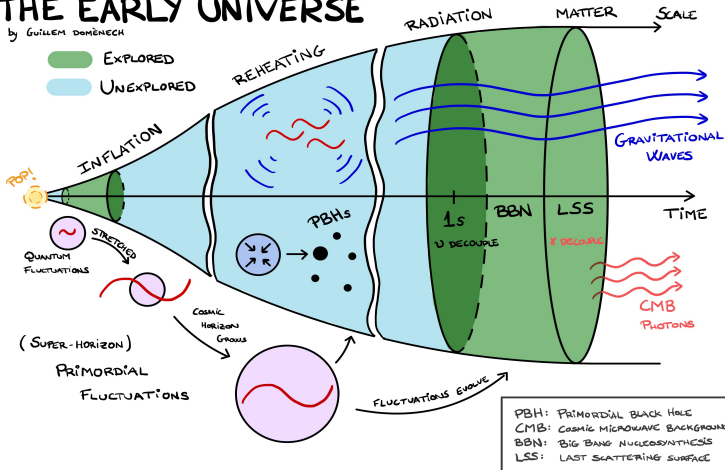 THE EARLY UNIVERSE
by GUILLEM DOMÈNECH
EXPLORED
UNEXPLORED
POP!
INFLATION
REHEATING
RADIATION
MATTER
SCALE
GRAVITATIONAL
WAVES
TIME
PBHs
1s
ν DECOUPLE
BBN
LSS
γ DECOUPLE
QUANTUM
FLUCTUATIONS
STRETCHED
COSMIC
HORIZON
GROWS
(SUPER-HORIZON)
PRIMORDIAL
FLUCTUATIONS
FLUCTUATIONS EVOLVE
CMB
PHOTONS
PBH: PRIMORDIAL BLACK HOLE
CMB: COSMIC MICROWAVE BACKGROUND
BBN: BIG BANG NUCLEOSYNTHESIS
LSS: LAST SCATTERING SURFACE